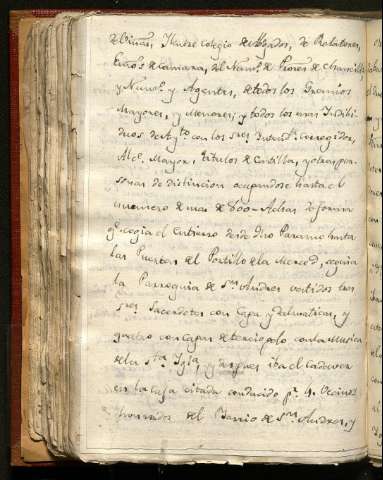 de Viñas, Ilustre Colegio de Abogados, de Relatores,
Escños de Camara, del Numº. de Procres. de Chancillª
y Numº. y Agentes, de todos los Gremios
Mayores, y Menores, y todos los mas Indibi-
duos de Aytº con los Sres Intendte. corregidor,
Alce. Mayor, titulos de Castilla, y otras per-
sonas de distincion ocupandose hasta el
numero de mas de 600= Achas de forma
q. cogia el entierro desde dho Paramo hasta
las Puertas del Portillo de la Merced, seguia
la Parroquia de Sn. Andres vestidos tres
Sres Sacerdotes con Capa y Dalmaticas, y
quatro con Capas de terciopelo con la Musica
de la Sta. Iglª, y despues iba el Cadaver
en la Caja citada conducido pr. 4. Vecinos
honrrados del Barrio de Sn. Andres, y